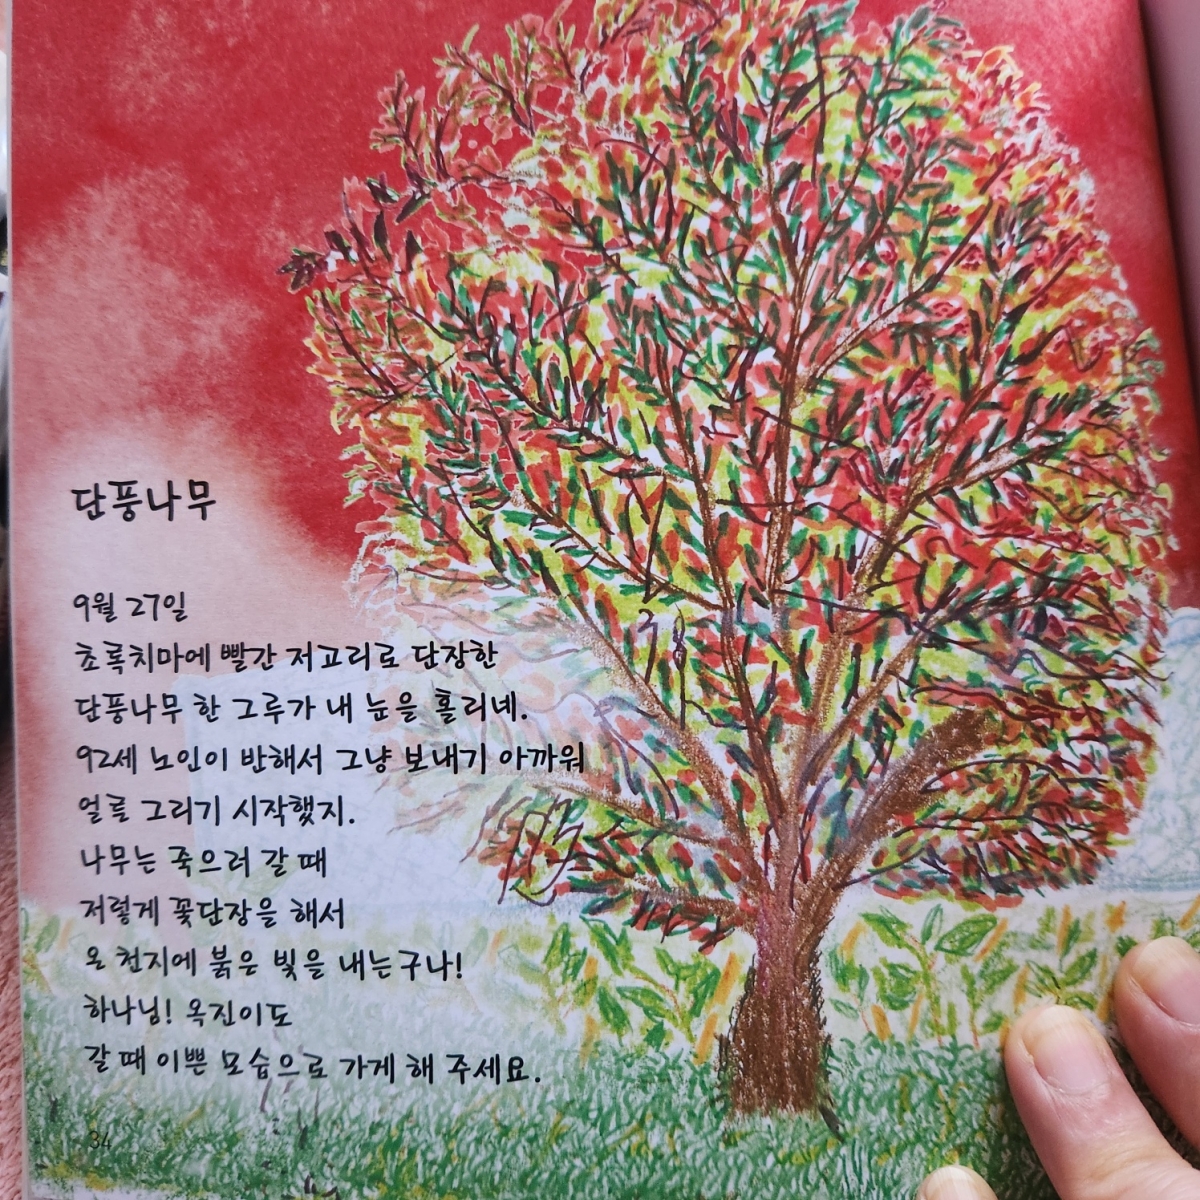 단풍나무
9월 27일
초록치마에 빨간 저고리로 단장한
단풍나무 한 그루가 내 눈을 홀리네.
92세 노인이 반해서 그냥 보내기 아까워
얼른 그리기 시작했지.
나무는 죽으러 갈 때
저렇게 꽃단장을 해서
온 천지에 붉은 빛을 내는구나!
하나님! 옥진이도
갈 때 이쁜 모습으로 가게 해 주세요.
34